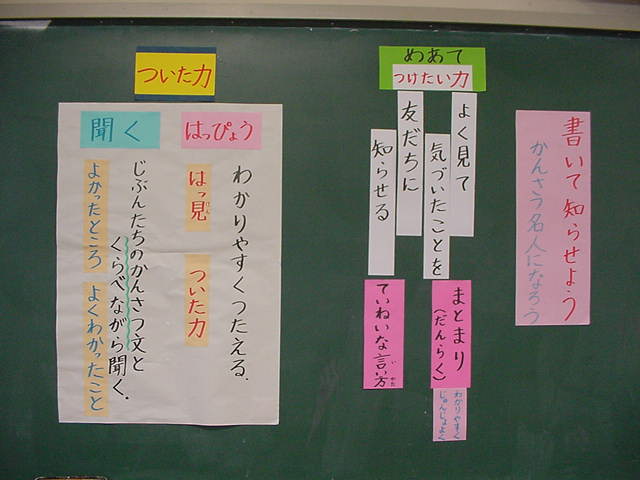 書いて知らせよう
かんさつ名人になろう
めあて
つけたい力
よく見て
気づいたことを
友だちに
知らせる
まとまり
(だんらく)
わかりやすく
じゅんじょよく
ていねいな言い方
い かた
ついた力
はっぴょう
わかりやすくつたえる.
はっ見
けん
ついた力
聞く
じぶんたちのかんさつ文と
くらべながら聞く.
よかったところ
よくわかったこと